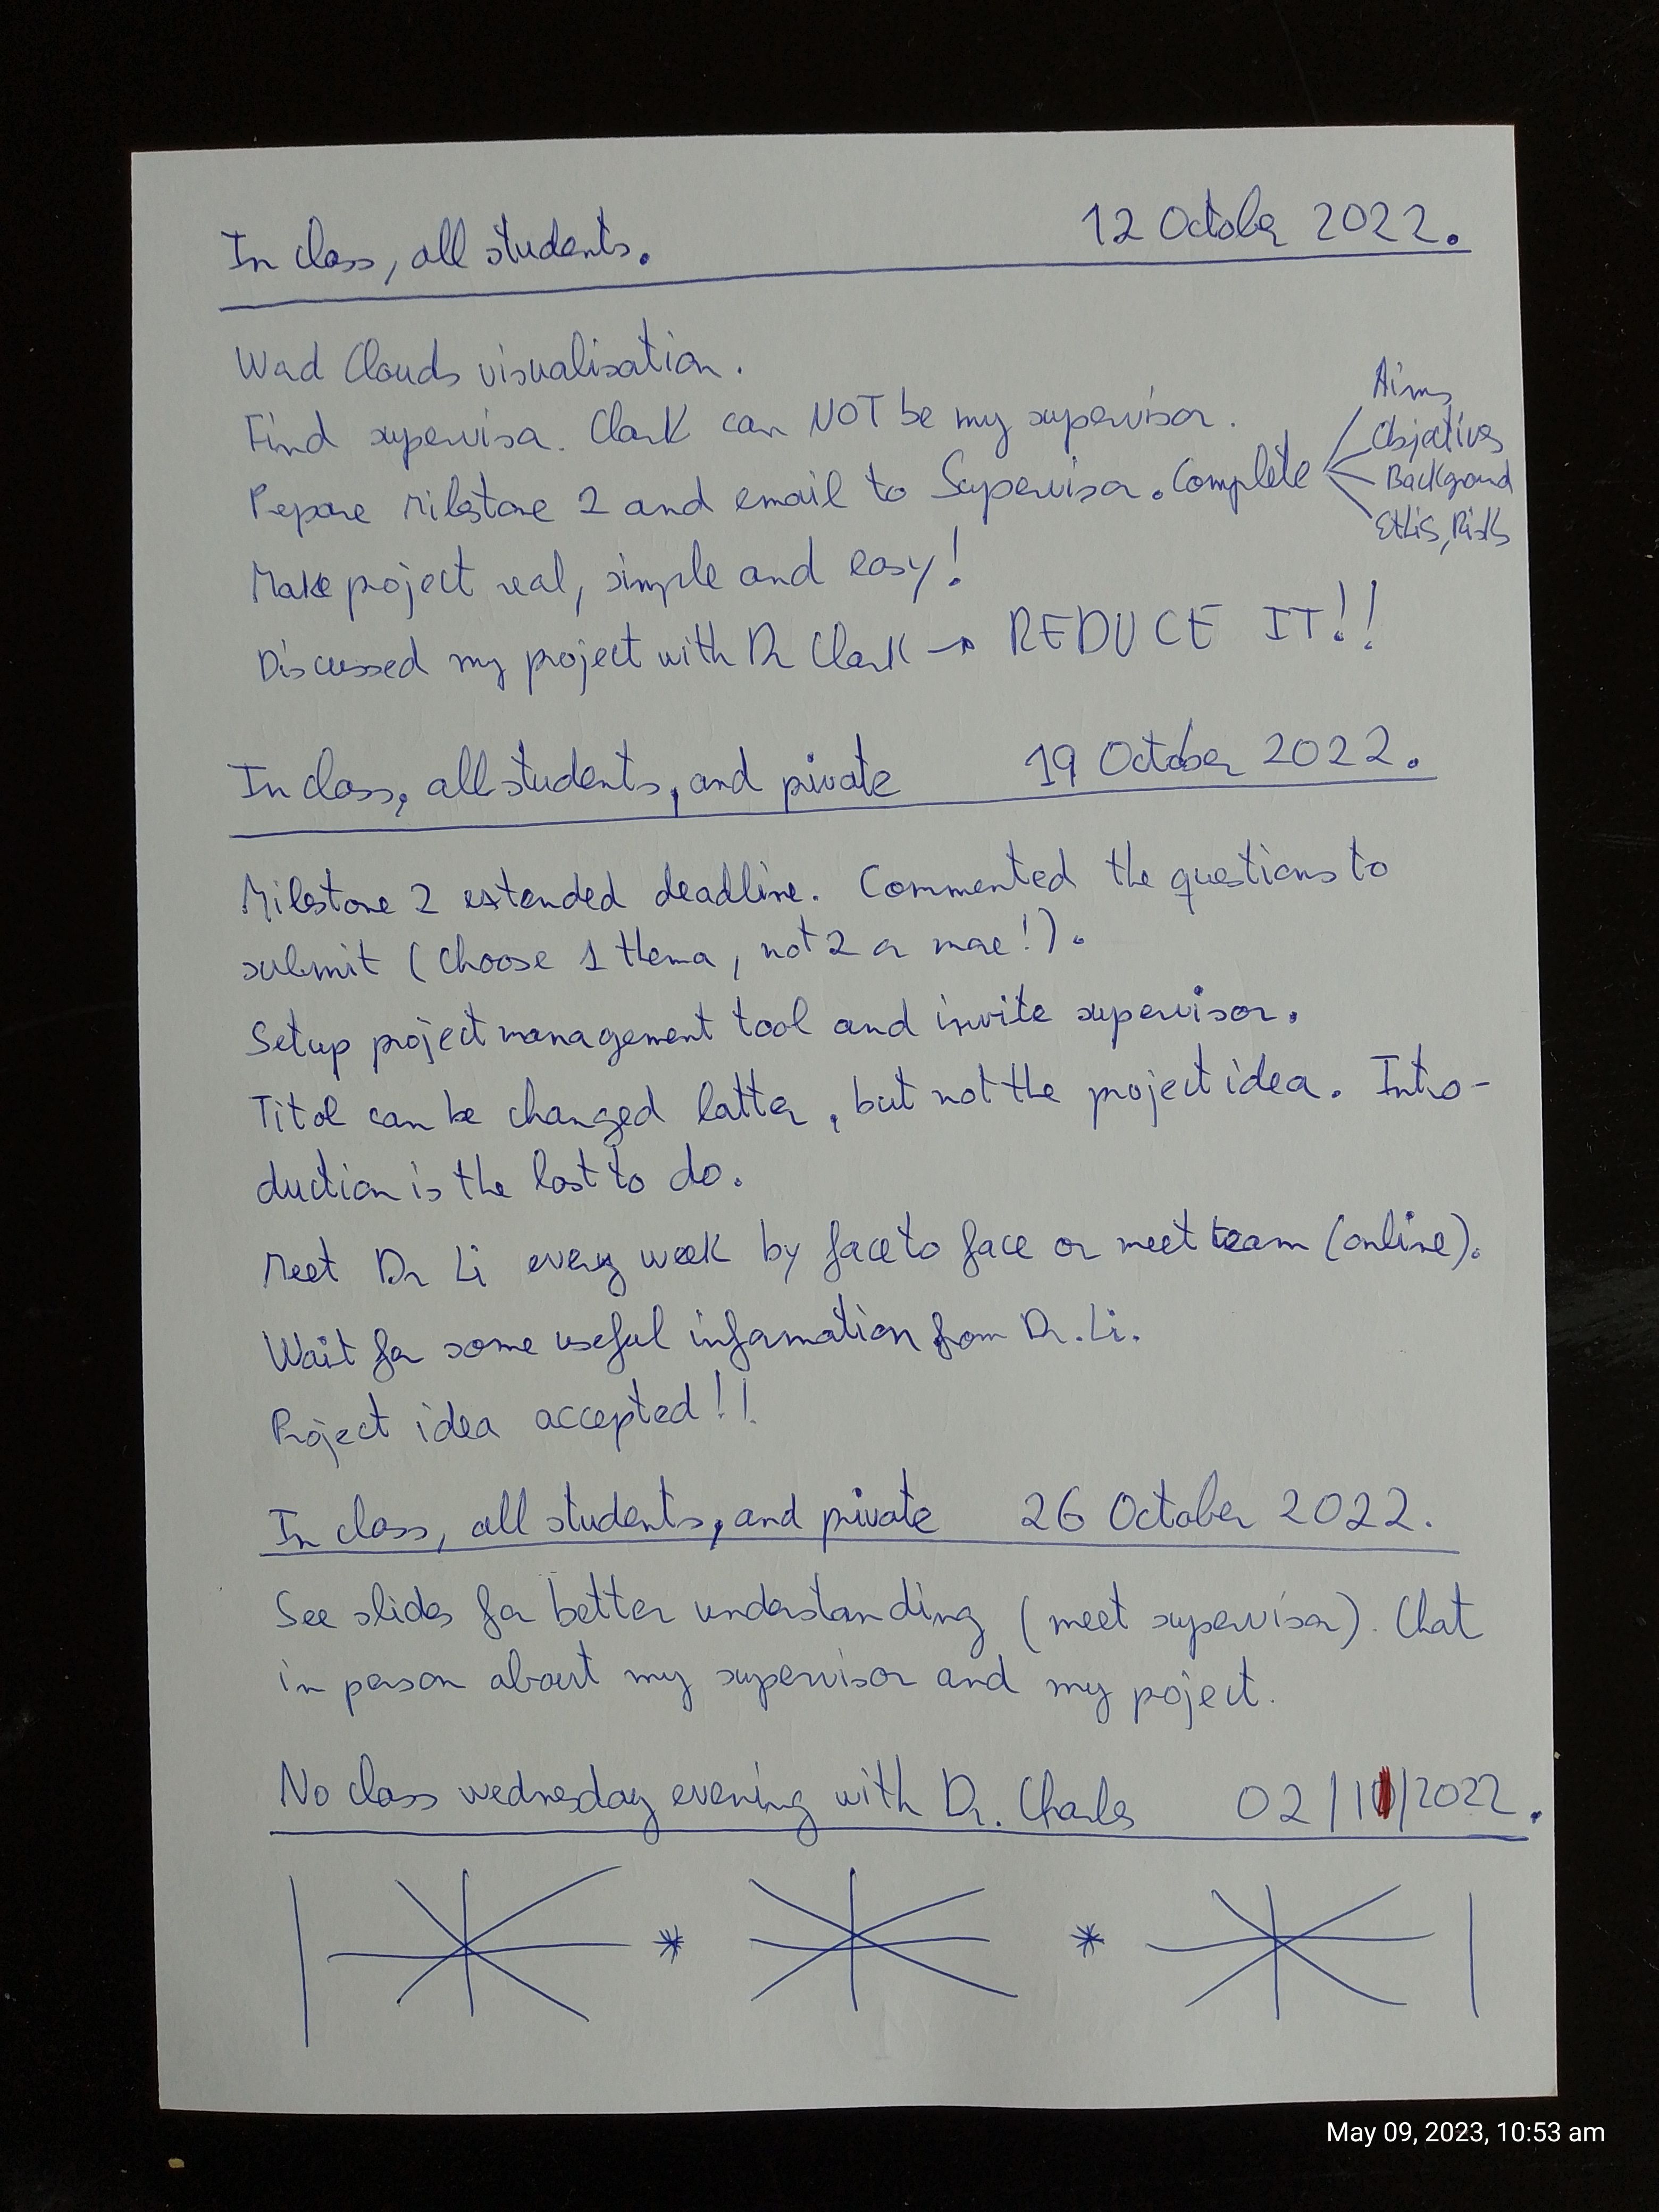 In class, all students. 12 October 2022.
Word Clouds visualisation.
Find supervisor. Clark can NOT be my supervisor.
Prepare Milestone 2 and email to Supervisor. Complete
Aims
Objectives
Background
Ethis, Risks
Make project real, simple and easy!
Discussed my project with Dr Clark → REDUCE IT!!
In class, all students, and private 19 October 2022.
Milestone 2 extended deadline. Commented the questions to
submit (choose 1 thema, not 2 or more!).
Setup project management tool and invite supervisor.
Titol can be changed latter, but not the project idea. Intro-
duction is the last to do.
Meet Dr Li every week by face to face or meet team (online).
Wait for some useful information from Dr. Li.
Project idea accepted!!
In class, all students, and private 26 October 2022.
See slides for better understanding (meet supervisor). Chat
in person about my supervisor and my poject.
No class wednesday evening with Dr. Charles 02/11/2022.
May 09, 2023, 10:53 am